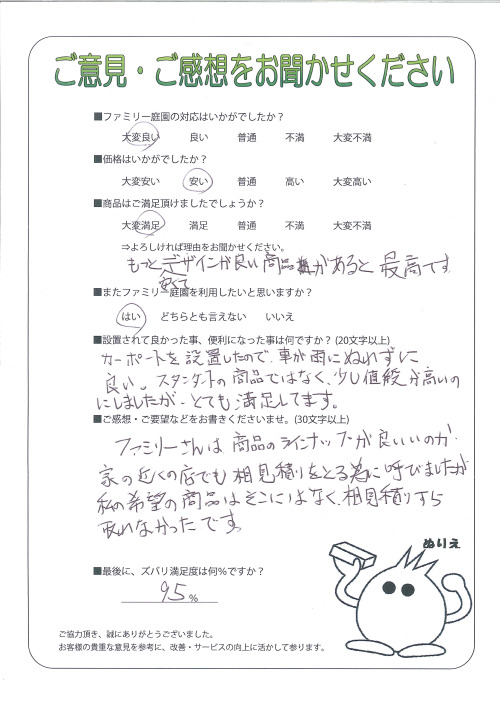 ご意見・ご感想をお聞かせください
■ファミリー庭園の対応はいかがでしたか？
大変良い 良い 普通 不満 大変不満
■価格はいかがでしたか？
大変安い 安い 普通 高い 大変高い
■商品はご満足頂けましたでしょうか？
大変満足 満足 普通 不満 大変不満
⇒よろしければ理由をお聞かせください。
もっとデザインが良い商品があると最高です
安くて
■またファミリー庭園を利用したいと思いますか？
はい どちらとも言えない いいえ
■設置されて良かった事、便利になった事は何ですか？(20文字以上)
カーポートを設置したので、車が雨にぬれずに
良い。スタンダートの商品ではなく、少し値段が高いの
にしましたが、とても満足してます。
■ご感想・ご要望などをお書きくださいませ。(30文字以上)
ファミリーさんは商品のラインナップが良いいのか、
家の近くの店でも相見積りをとる為に呼びましたが
私の希望の商品はそこにはなく、相見積りすら
取れなかったです。
■最後に、ズバリ満足度は何％ですか？
95％
ぬりえ
ご協力頂き、誠にありがとうございました。
お客様の貴重な意見を参考に、改善・サービスの向上に活かして参ります。